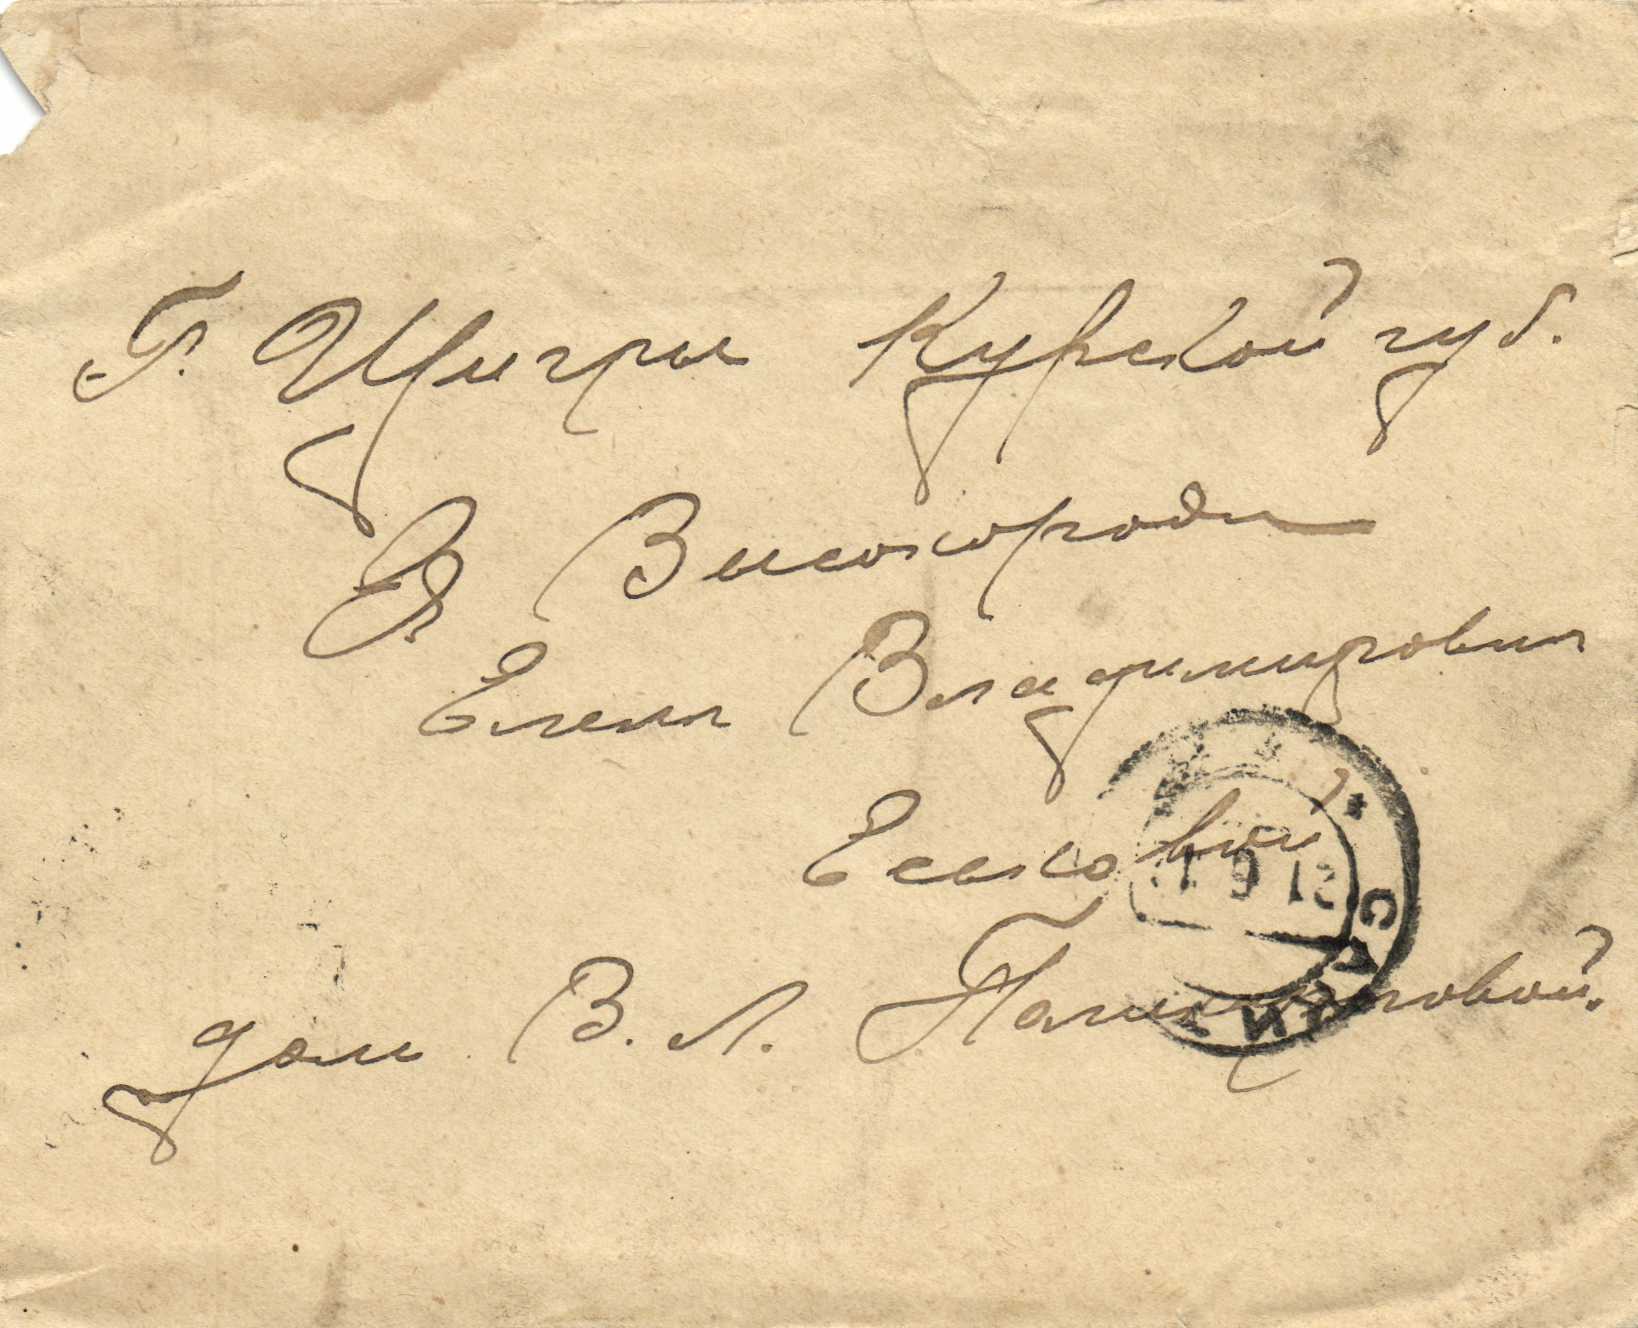 Г. Щигры Курской губ.
Ея Высокороди
Елене Владимировне
Еськовой
дом В. Л. Пономаревой.
21 6 1